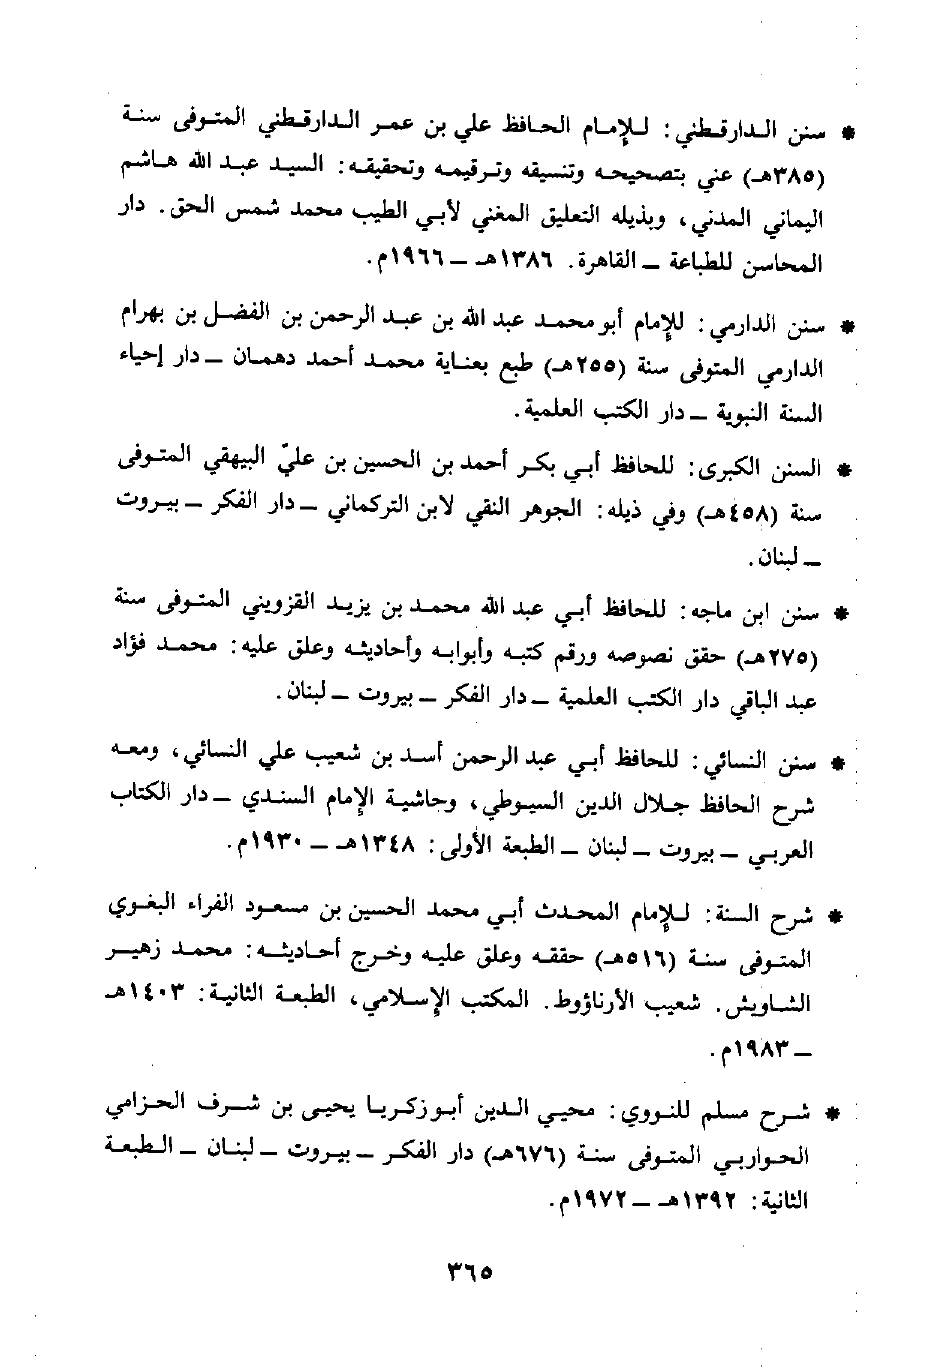 * سنن الدارقطني: للإمام الحافظ علي بن عمر الدارقطني المتوفى سنة
(٣٨٥هـ) عني بتصحيحه وتنسيقه وترقيمه وتحقيقه: السيد عبد الله هاشم
اليماني المدني، وبذيله التعليق المغني لأبي الطيب محمد شمس الحق. دار
المحاسن للطباعة ــ القاهرة. ١٣٨٦هـ ــ ١٩٦٦م.
* سنن الدارمي: للإمام أبو محمد عبد الله بن عبد الرحمن بن الفضل بن بهرام
الدارمي المتوفى سنة (٢٥٥هـ) طبع بعناية محمد أحمد دهمان ــ دار إحياء
السنة النبوية ــ دار الكتب العلمية.
* السنن الكبرى: للحافظ أبي بكر أحمد بن الحسين بن عليّ البيهقي المتوفى
سنة (٤٥٨هـ) وفي ذيله: الجوهر النقي لابن التركماني ــ دار الفكر ــ بيروت
ــ لبنان.
* سنن ابن ماجه: للحافظ أبي عبد الله محمد بن يزيد القزويني المتوفى سنة
(٢٧٥هـ) حقق نصوصه ورقم كتبه وأبوابه وأحاديثه وعلق عليه: محمد فؤاد
عبد الباقي دار الكتب العلمية ــ دار الفكر ــ بيروت ــ لبنان.
* سنن النسائي: للحافظ أبي عبد الرحمن أسد بن شعيب علي النسائي، ومعه
شرح الحافظ جلال الدين السيوطي، وحاشية الإمام السندي ــ دار الكتاب
العربي ــ بيروت ــ لبنان ــ الطبعة الأولى: ١٣٤٨هـ ــ ١٩٣٠م.
* شرح السنة: للإمام المحدث أبي محمد الحسين بن مسعود الفراء البغوي
المتوفى سنة (٥١٦هـ) حققه وعلق عليه وخرج أحاديثه: محمد زهير
الشاويش. شعيب الأرناؤوط. المكتب الإسلامي، الطبعة الثانية: ١٤٠٣هـ
ــ ١٩٨٣م.
* شرح مسلم للنووي: محيي الدين أبو زكريا يحيى بن شرف الحزامي
الحواربي المتوفى سنة (٦٧٦هـ) دار الفكر ــ بيروت ــ لبنان ــ الطبعة
الثانية: ١٣٩٢هـ ــ ١٩٧٢م.
٣٦٥